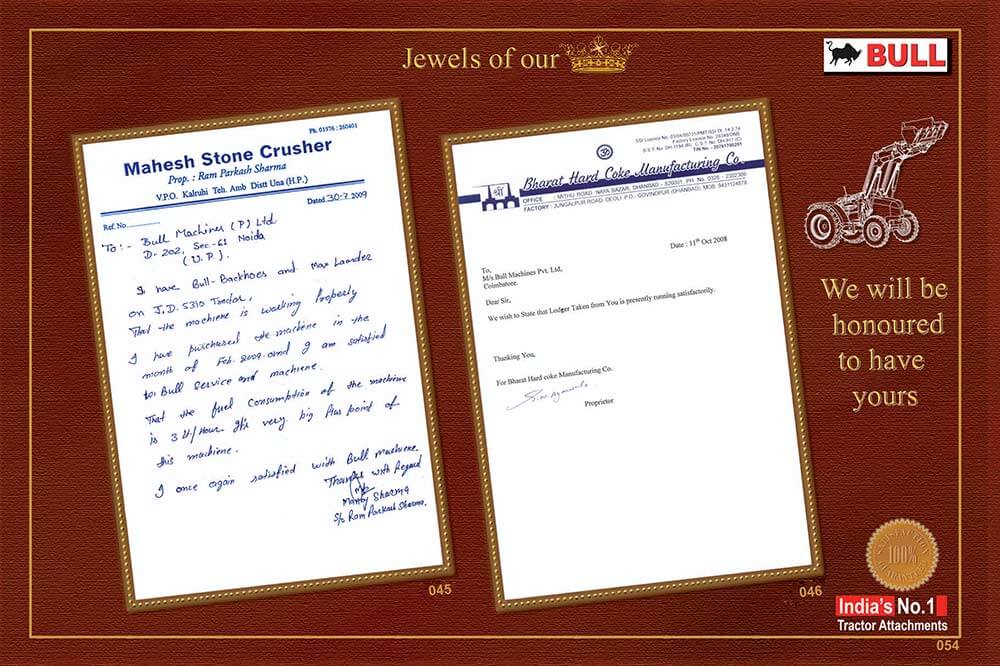 Jewels of our
BULL
Ph. 01976 : 260401
Mahesh Stone Crusher
Prop. : Ram Parkash Sharma
V.P.O. Kalruhi Teh. Amb Distt Una (H.P.)
Ref. No.
Dated 30-7 2009
To:- Bull Machines (P) Ltd
D-202, Sec-61 Noida
(U.P.).
I have Bull-Backhoes and Max Loander
on J.D. 5310 Tractor,
That the machiene is working Properly
I have purchased the machiene in the
month of Feb. 2009 and I am satisfied
Bull Service and machiene.
That the fuel Consumption of the machiene
is 3 Lt/Hour. It's very big Plus point of
this machiene.
I once again satisfied with Bull machiene.
Thanks with Regard
Sharma
S/o Ram Parkash Sharma.
045
TIN No. - 20741700201
Bharat Hard Coke Manufacturing Co.
OFFICE : MITHU ROAD, NAYA BAZAR, DHANBAD - 826001, PH. No. 0326 - 2302309
FACTORY : JUNGALPUR ROAD, DEOLI, P.O.- GOVINDPUR (DHANBAD), MOB. 9431124879
श्री
Date : 11th Oct 2008
To,
M/s Bull Machines Pvt. Ltd,
Coimbatore.
Dear Sir,
We wish to State that Lodger Taken from You is presently running satisfactorily.
Thanking You,
For Bharat Hard coke Manufacturing Co.
Proprietor
046
We will be
honoured
to have
yours
SATISFACTION
100%
GUARANTEE
India's No.1
Tractor Attachments
054